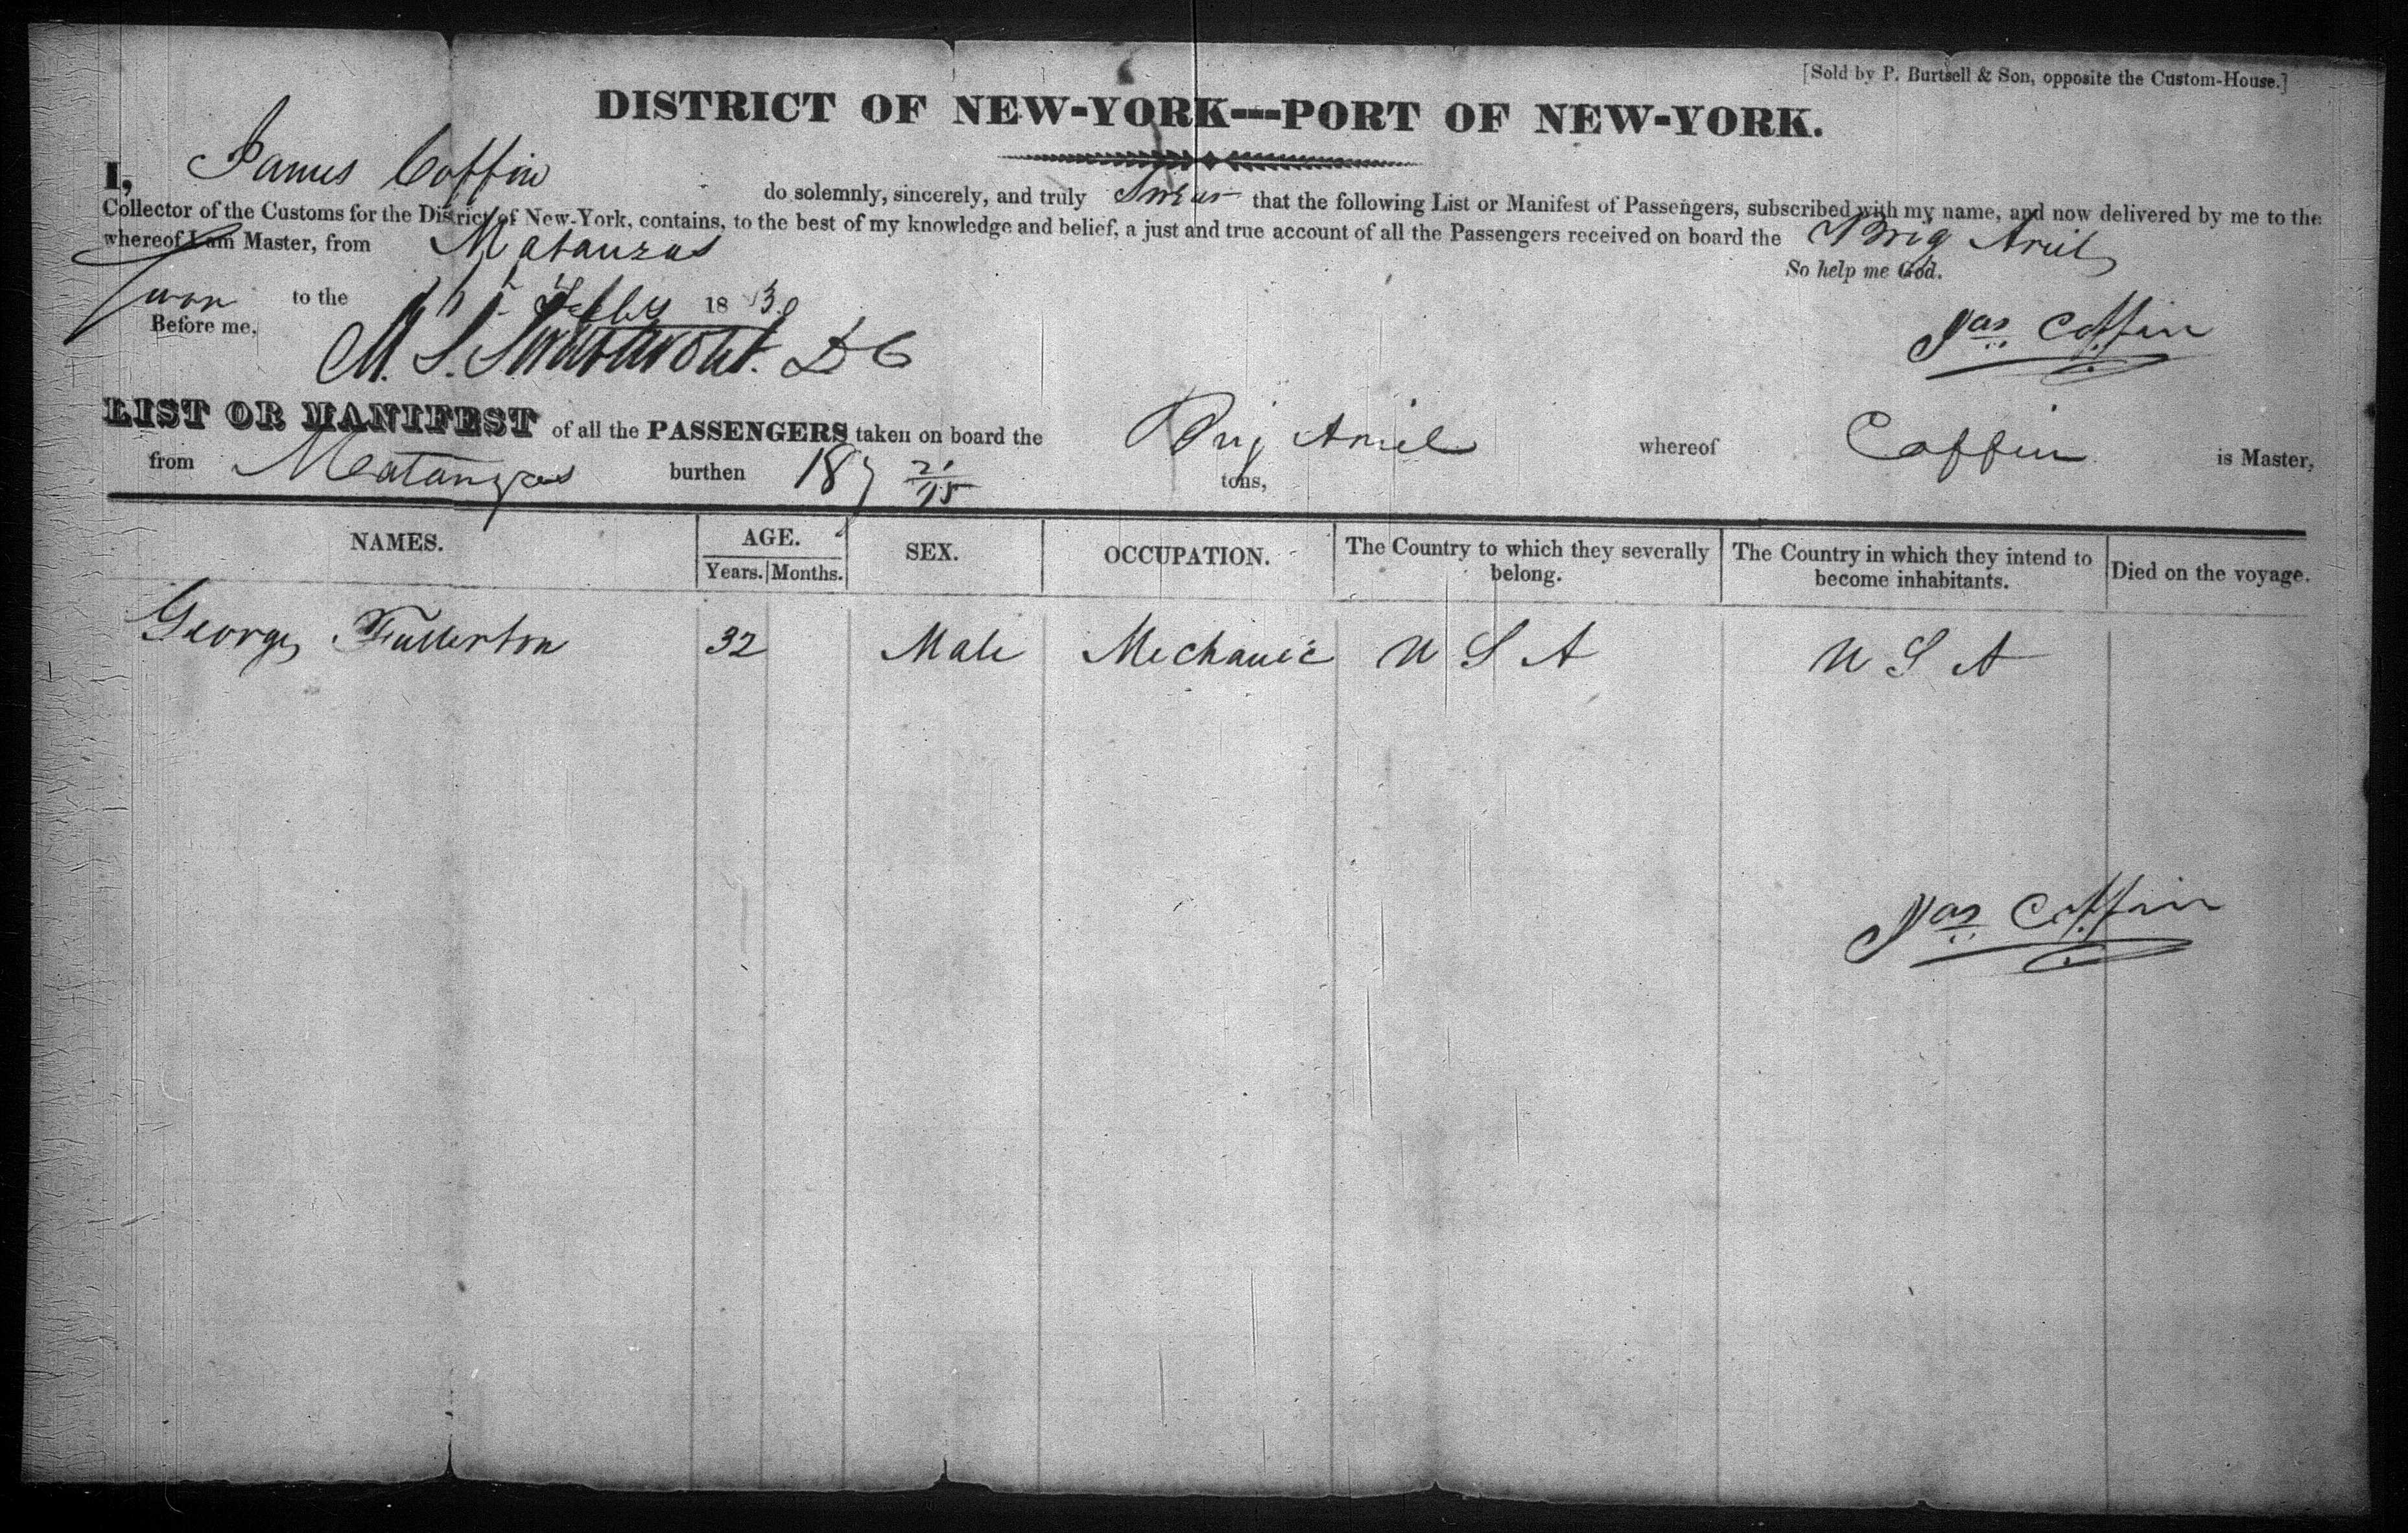 [Sold by P. Burtsell & Son, opposite the Custom-House.]
DISTRICT OF NEW-YORK---PORT OF NEW-YORK.
I, James Coffin do solemnly, sincerely, and truly Swear that the following List or Manifest of Passengers, subscribed with my name, and now delivered by me to the
Collector of the Customs for the District of New-York, contains, to the best of my knowledge and belief, a just and true account of all the Passengers received on board the Brig Ariel
whereof I am Master, from Matanzas
So help me God.
Sworn to the Feby 183
Jas Coffin
Before me,
M. S. Swartwout. D C
LIST OR MANIFEST of all the PASSENGERS taken on board the Brig Ariel whereof Coffin is Master,
from Matanzas burthen 187 21/95 tons,
NAMES. AGE. SEX. OCCUPATION. The Country to which they severally belong. The Country in which they intend to become inhabitants. Died on the voyage.
Years. Months.
George Fullerton 32 Male Mechanic U S A U S A
Jas Coffin